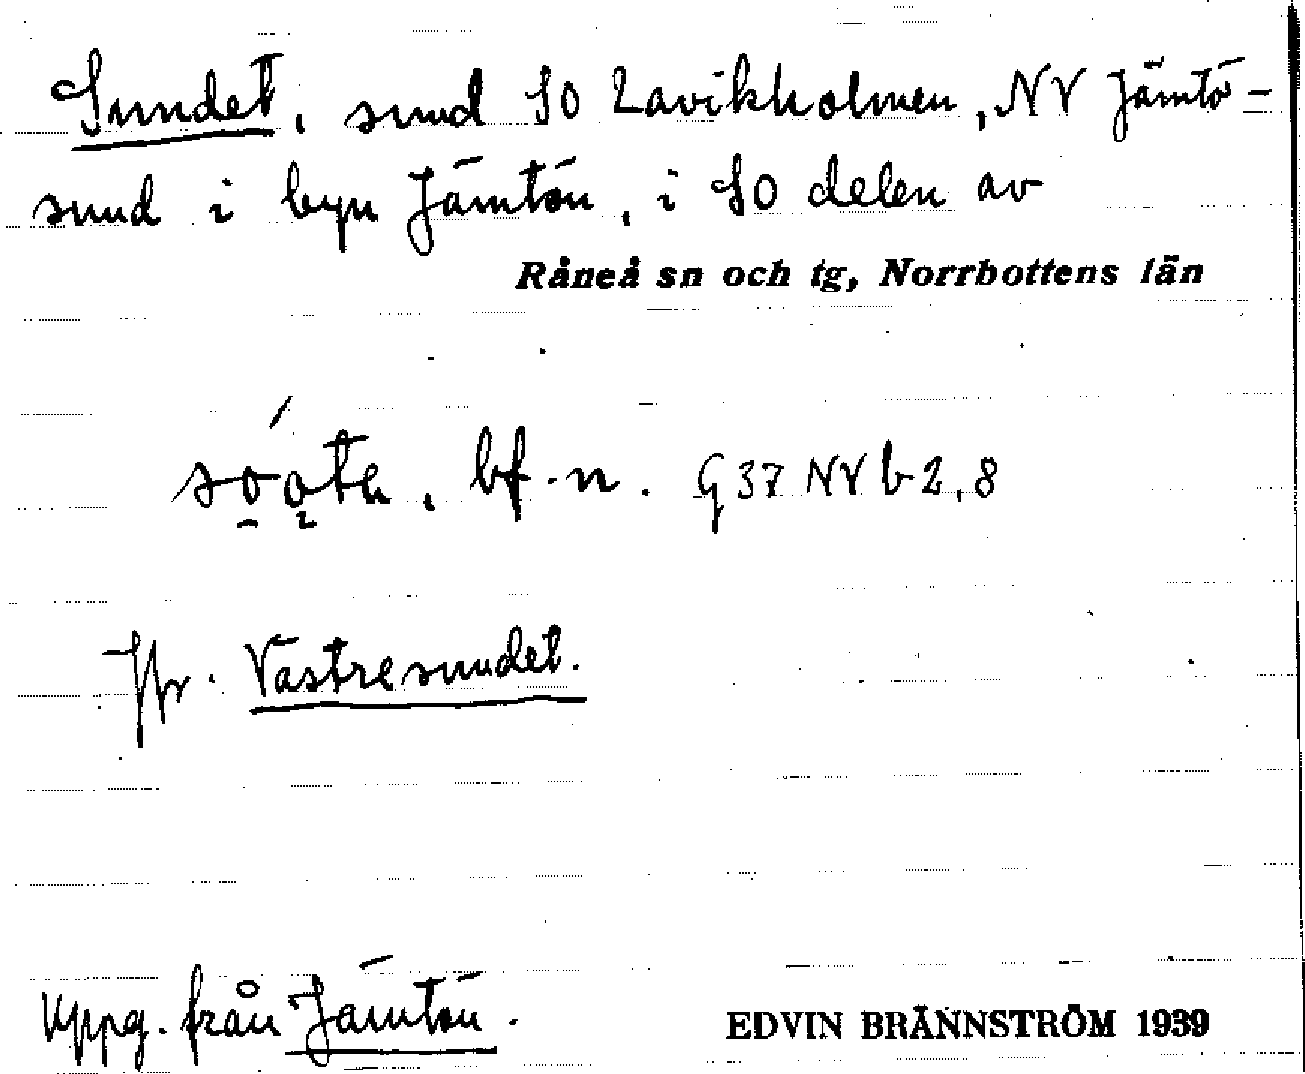 Sundet, sund SO Lavikholmen, NV Jämtö-
sund i byn Jämtön, i SO delen av
Råneå sn och tg, Norrbottens län
bf. n. G 37 NV b 2,8
Jfr. Västresundet.
Uppg. från Jämtön.
EDVIN BRÄNNSTRÖM 1939